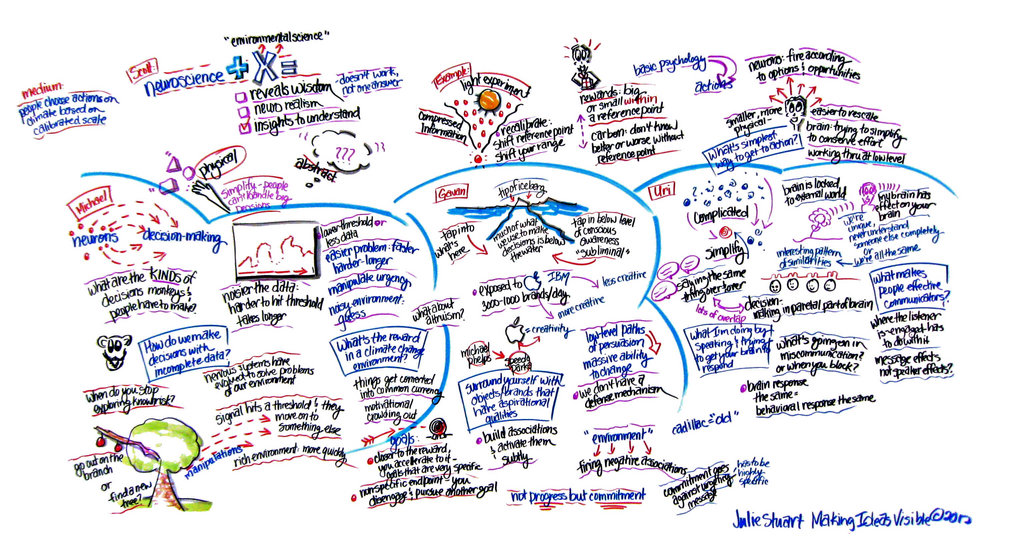 "environmental science"
Scott:
neuroscience + X =
- doesn't work,
not one answer
reveals wisdom
neuro realism
insights to understand
medium:
people choose actions on
climate based on
calibrated scale
physical
abstract
???
simplify - people
can't handle big
decisions
Example:
light experiment
compressed
information
recalibrate:
shift reference point
shift your range
rewards: big
or small within
a reference point
carbon: don't know
better or worse without
reference point
basic psychology
actions
neurons: fire according
to options & opportunities
smaller, more
physical
easier to rescale
brain: trying to simplify
to conserve effort
working thru at low level
What's simplest
way to get to action?
Michael
neurons
decision-making
what are the KINDS of
decisions monkeys &
people have to make?
How do we make
decisions with
incomplete data?
when do you stop
exploring known risk?
nervous systems have
evolved to solve problems
of our environment
signal hits a threshold & they
move on to
something else
manipulations
rich environment: more quickly
go out on the
branch
or
find a new
tree?
noisier the data:
harder to hit threshold
takes longer
lower threshold or
less data
easier problem: faster
harder - longer
manipulate urgency
noisy environment:
guess
what about
altruism?
What's the reward
in a climate change
environment?
things get converted
into common currency
motivational
crowding out
goals:
closer to the reward,
you accelerate to it -
goals that are very specific
nonspecific endpoint - you
disengage & pursue another goal
Gavan
tip of iceberg
tap into
what's
here
much of what
we use to make
decisions is below
the water
tap in below level
of conscious
awareness
"subliminal"
exposed to
3000-1000 brands/day
IBM
less creative
more creative
= creativity
michael
phelps
speedo
pants
surround yourself with
objects/brands that
have aspirational
qualities
build associations
& activate them
subtly
low-level paths
of persuasion
massive ability
to change
we don't have a
defense mechanism
"environment"
firing negative associations
cadillac = "old"
not progress but commitment
commitment goes
against urgency
message
has to be
highly
specific
Uri
complicated
simplify
saying the same
thing over & over
lots of overlap
brain is locked
to external world
my brain has
effect on your
brain
we're
unique,
never understand
someone else completely
or
we're all the same
interesting pattern
of similarities
decision-
making in parietal part of brain
What makes
people effective
communicators?
where the listener
is engaged has
to do with it
message effects
not speaker effects?
what I'm doing by
speaking & trying
to get your brain to
respond
what's going on in
miscommunication?
or when you block?
brain response
the same =
behavioral response the same
Julie Stuart Making Ideas Visible © 2012